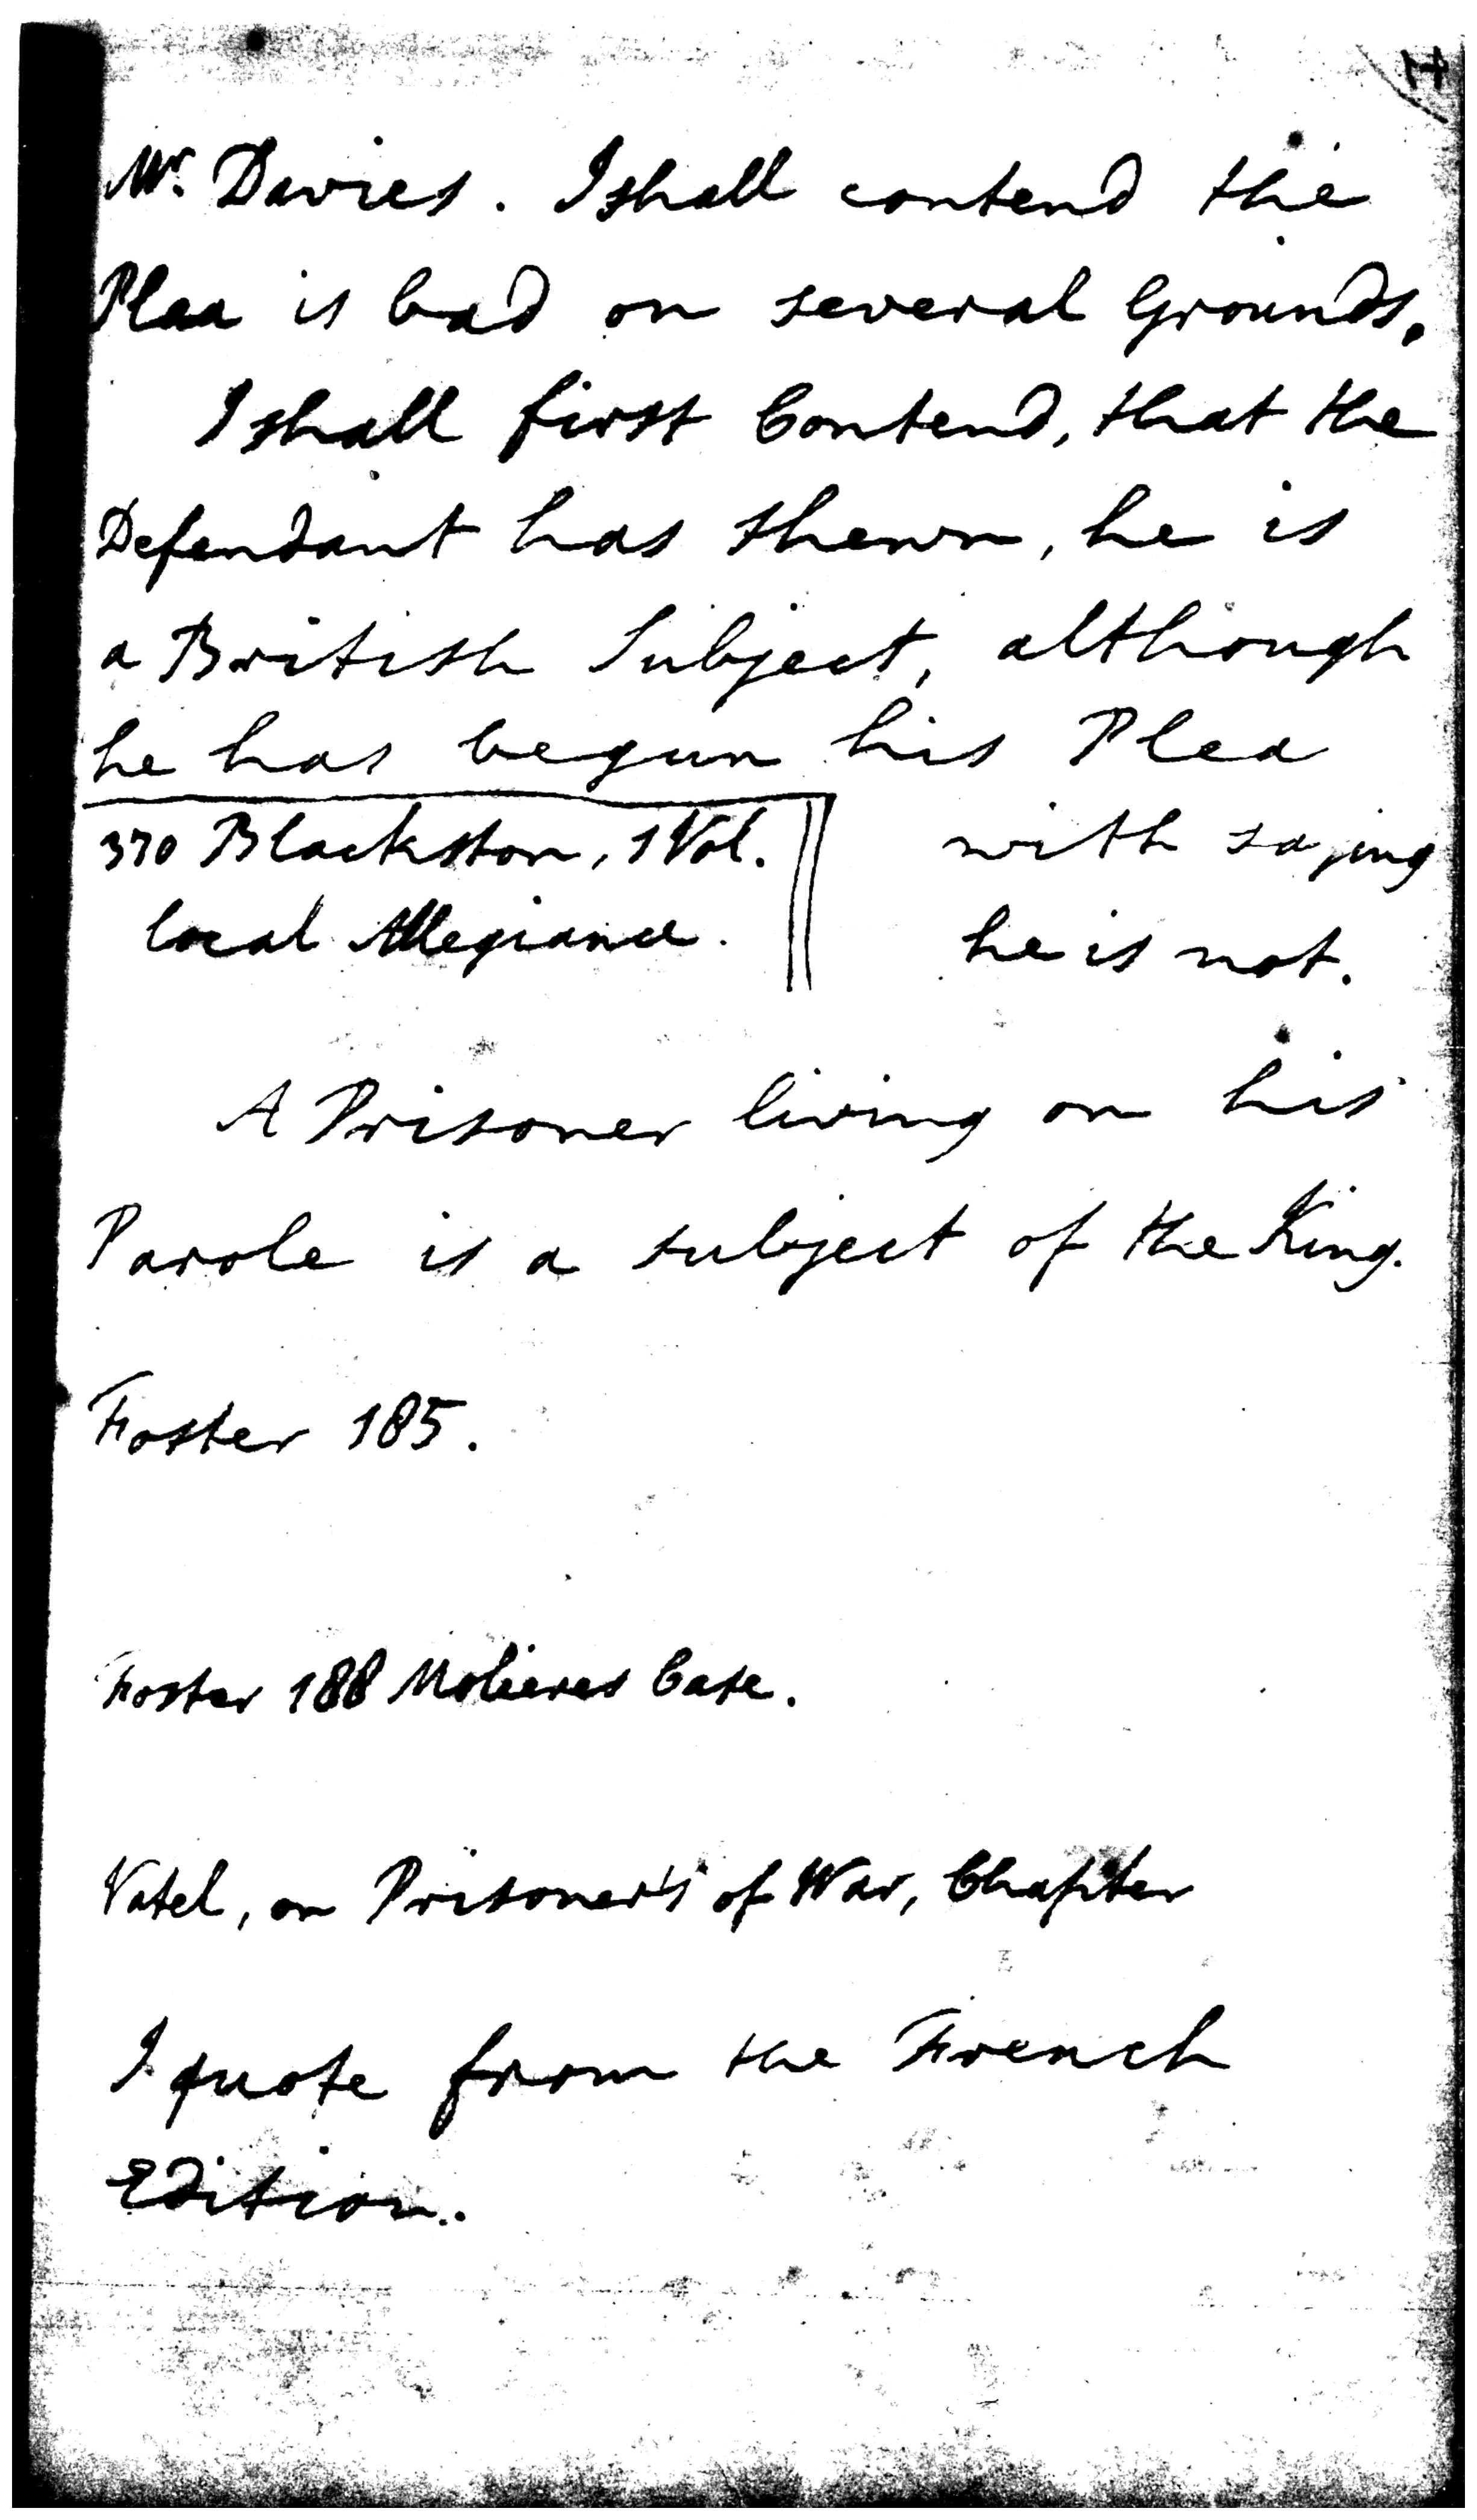 Mr. Davies. I shall contend the
Plea is bad on several Grounds.
I shall first Contend, that the
Defendant has shewn, he is
a British Subject, although
he has begun his Plea
with saying
he is not.
370 Blackston, 1 Vol.
local Allegiance.
A Prisoner living on his
Parole is a subject of the King.
Foster 185.
Foster 188 Molieres Case.
Vatel, on Prisoner's of War, Chapter
I quote from the French
Edition.